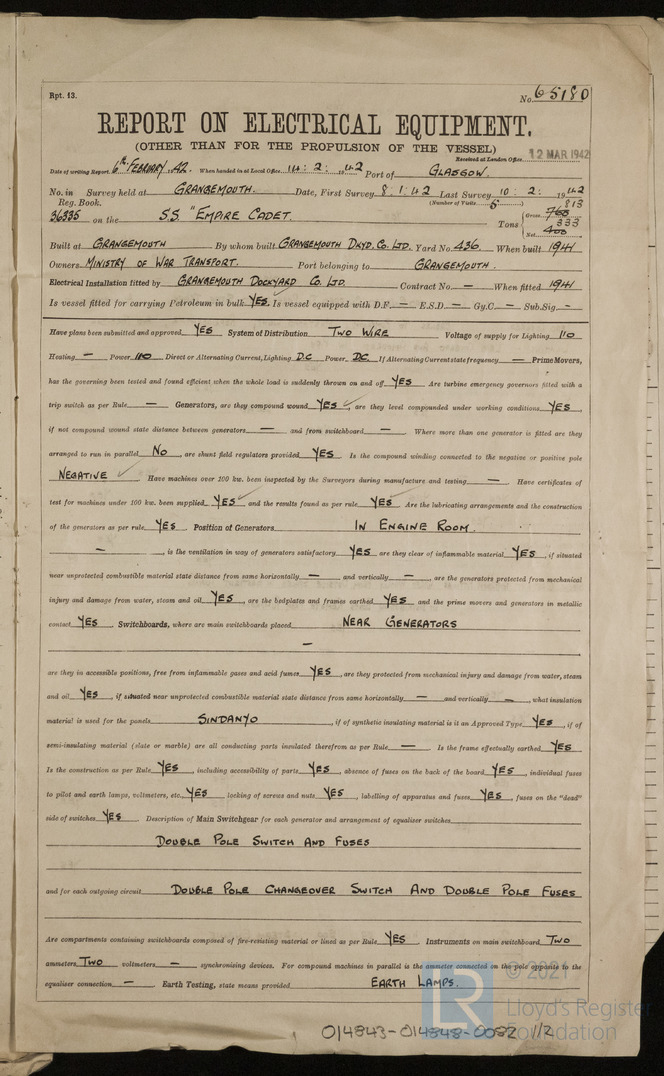 Rpt. 13.
No. 65180
REPORT ON ELECTRICAL EQUIPMENT.
(OTHER THAN FOR THE PROPULSION OF THE VESSEL)
Received at London Office 12 MAR 1942
Date of writing Report 6th FEBRUARY 1942. When handed in at Local Office 14 : 2 : 1942 Port of GLASGOW.
No. in Survey held at GRANGEMOUTH. Date, First Survey 8 . 1 . 42 Last Survey 10 : 2 : 1942
Reg. Book. (Number of Visits 5 ) 813
36335 on the S.S. "EMPIRE CADET. Tons { Gross 768 333
Net 408
Built at GRANGEMOUTH By whom built GRANGEMOUTH DKYD. CO. LTD. Yard No. 436 When built 1941
Owners MINISTRY OF WAR TRANSPORT. Port belonging to GRANGEMOUTH.
Electrical Installation fitted by GRANGEMOUTH DOCKYARD CO. LTD. Contract No. — When fitted 1941
Is vessel fitted for carrying Petroleum in bulk YES. Is vessel equipped with D.F. — E.S.D. — Gy.C. — Sub.Sig. —
Have plans been submitted and approved YES System of Distribution TWO WIRE Voltage of supply for Lighting 110
Heating — Power 110 Direct or Alternating Current, Lighting D.C Power DC. If Alternating Current state frequency — Prime Movers,
has the governing been tested and found efficient when the whole load is suddenly thrown on and off YES Are turbine emergency governors fitted with a
trip switch as per Rule — Generators, are they compound wound YES, are they level compounded under working conditions YES,
if not compound wound state distance between generators — and from switchboard — Where more than one generator is fitted are they
arranged to run in parallel NO, are shunt field regulators provided YES Is the compound winding connected to the negative or positive pole
NEGATIVE Have machines over 100 kw. been inspected by the Surveyors during manufacture and testing — . Have certificates of
test for machines under 100 kw. been supplied YES and the results found as per rule YES Are the lubricating arrangements and the construction
of the generators as per rule YES Position of Generators IN ENGINE ROOM.
—, is the ventilation in way of generators satisfactory YES are they clear of inflammable material YES, if situated
near unprotected combustible material state distance from same horizontally — and vertically —, are the generators protected from mechanical
injury and damage from water, steam and oil YES, are the bedplates and frames earthed YES and the prime movers and generators in metallic
contact YES Switchboards, where are main switchboards placed NEAR GENERATORS
—
are they in accessible positions, free from inflammable gases and acid fumes YES, are they protected from mechanical injury and damage from water, steam
and oil YES, if situated near unprotected combustible material state distance from same horizontally — and vertically —, what insulation
material is used for the panels SINDANYO, if of synthetic insulating material is it an Approved Type YES, if of
semi-insulating material (slate or marble) are all conducting parts insulated therefrom as per Rule — Is the frame effectually earthed YES
Is the construction as per Rule YES, including accessibility of parts YES, absence of fuses on the back of the board YES, individual fuses
to pilot and earth lamps, voltmeters, etc. YES locking of screws and nuts YES, labelling of apparatus and fuses YES, fuses on the "dead"
side of switches YES Description of Main Switchgear for each generator and arrangement of equaliser switches
DOUBLE POLE SWITCH AND FUSES
and for each outgoing circuit DOUBLE POLE CHANGEOVER SWITCH AND DOUBLE POLE FUSES
Are compartments containing switchboards composed of fire-resisting material or lined as per Rule YES Instruments on main switchboard TWO
ammeters TWO voltmeters — synchronising devices. For compound machines in parallel is the ammeter connected on the pole opposite to the
equaliser connection — Earth Testing, state means provided EARTH LAMPS.
© 2021
LR
Lloyd's Register
Foundation
014843-014848-0082 1/2